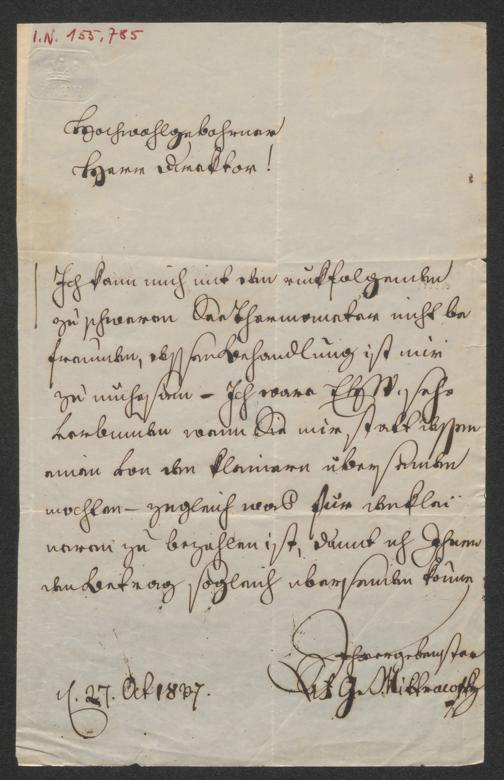 I.N. 155,785
Hochwohlgebohrner
Herr Direktor!
Ich kann mich mit dem rückfolgenden
zu schweren See Thermometer nicht be
freunden, dessen Behandlung ist mir
zu mühesam – Ich wäre sehr
verbunden wenn Sie mir statt dessen
einen von den kleinern übersenden
möchten – zugleich was für den klei
neren zu bezahlen ist, damit ich Ihnen
den Betrag sogleich übersenden könne
Ihr ergebenster
Mittrowsky
d. 27. Oct 1837.